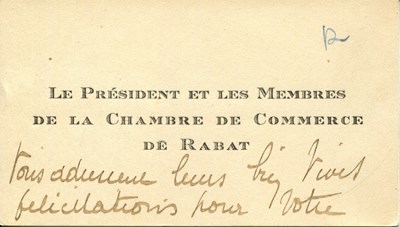 LE PRÉSIDENT ET LES MEMBRES
DE LA CHAMBRE DE COMMERCE
DE RABAT
Vous adressent leurs bien vives
félicitations pour votre